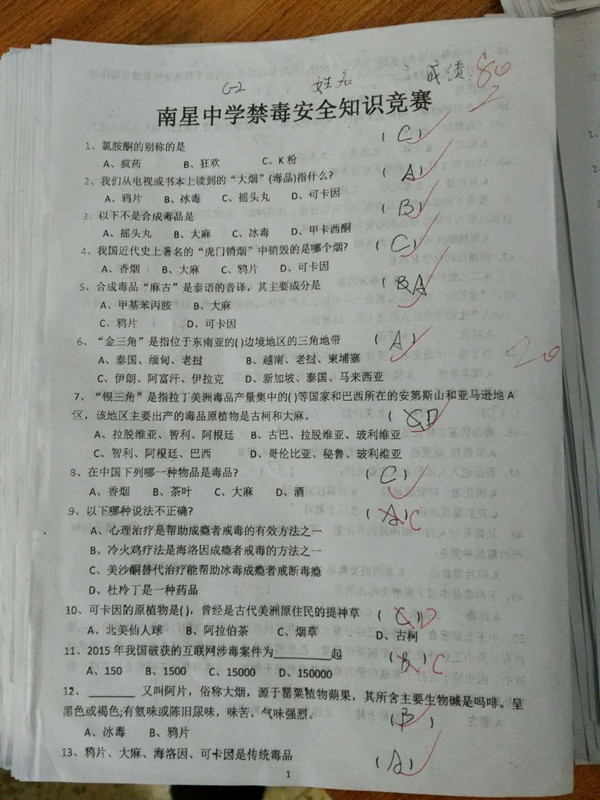 G-2 姓名 成绩 80
南星中学禁毒安全知识竞赛
1、氯胺酮的别称的是 ( C )
A、疯药 B、狂欢 C、K 粉
2、我们从电视或书本上读到的“大烟”(毒品)指什么? ( A )
A、鸦片 B、冰毒 C、摇头丸 D、可卡因
3、以下不是合成毒品是 ( B )
A、摇头丸 B、大麻 C、冰毒 D、甲卡西酮
4、我国近代史上著名的“虎门销烟”中销毁的是哪个烟? ( C )
A、香烟 B、大麻 C、鸦片 D、可卡因
5、合成毒品“麻古”是泰语的音译，其主要成分是 ( A )
A、甲基苯丙胺 B、大麻
C、鸦片 D、可卡因
6、“金三角”是指位于东南亚的( )边境地区的三角地带 ( A )
A、泰国、缅甸、老挝 B、越南、老挝、柬埔寨
C、伊朗、阿富汗、伊拉克 D、新加坡、泰国、马来西亚
20
7、“银三角”是指拉丁美洲毒品产量集中的( )等国家和巴西所在的安第斯山和亚马逊地 A
区，该地区主要出产的毒品原植物是古柯和大麻。 ( D )
A、拉脱维亚、智利、阿根廷 B、古巴、拉脱维亚、玻利维亚
C、智利、阿根廷、巴西 D、哥伦比亚、秘鲁、玻利维亚
8、在中国下列哪一种物品是毒品? ( C )
A、香烟 B、茶叶 C、大麻 D、酒
9、以下哪种说法不正确? ( A ) C
A、心理治疗是帮助成瘾者戒毒的有效方法之一
B、冷火鸡疗法是海洛因成瘾者戒毒的方法之一
C、美沙酮替代治疗能帮助冰毒成瘾者戒断毒瘾
D、杜冷丁是一种药品
10、可卡因的原植物是( )，曾经是古代美洲原住民的提神草 ( C ) D
A、北美仙人球 B、阿拉伯茶 C、烟草 D、古柯
11、2015 年我国破获的互联网涉毒案件为________起 ( B ) C
A、150 B、1500 C、15000 D、150000
12、_______ 又叫阿片，俗称大烟，源于罂粟植物蒴果，其所含主要生物碱是吗啡。呈
黑色或褐色;有氨味或陈旧尿味，味苦，气味强烈。 ( B )
A、冰毒 B、鸦片
13、鸦片、大麻、海洛因、可卡因是传统毒品 ( A )
1